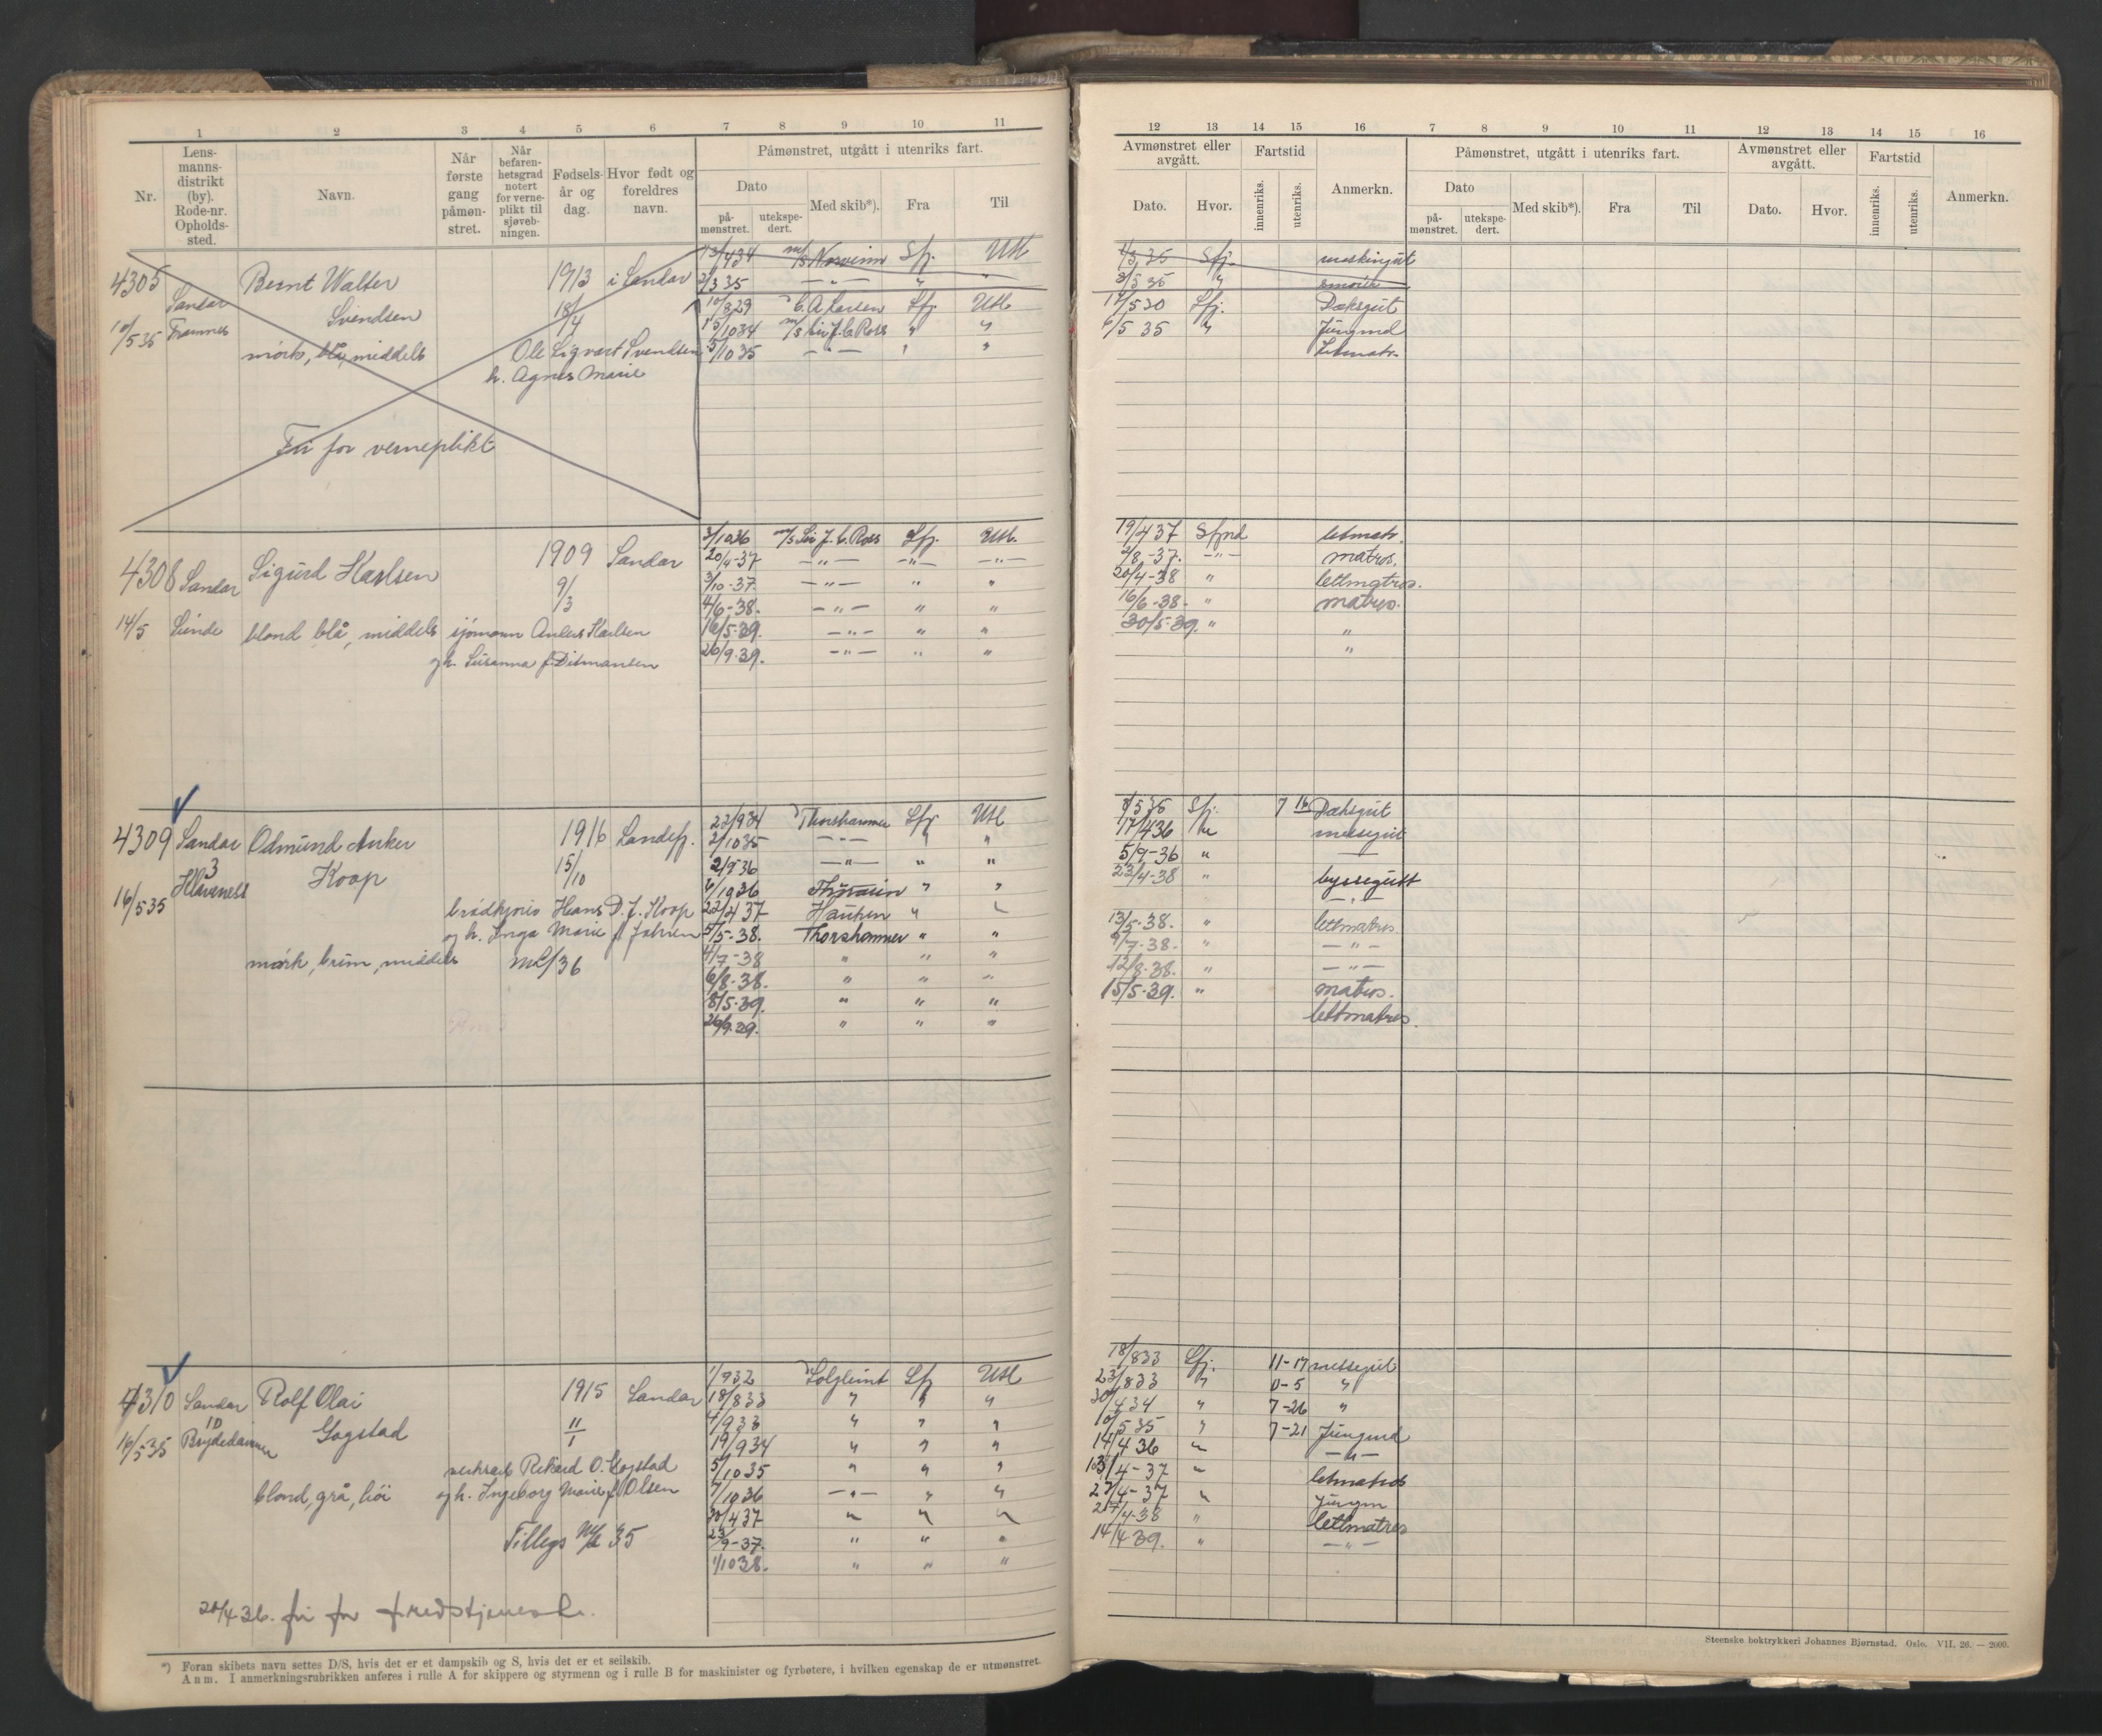 1 2 3 4 5 6 7 8 9 10 11
Nr.
Lens-
manns-
distrikt
(by).
Rode-nr.
Opholds-
sted.
Navn.
Når
første
gang
påmøn-
stret.
Når
befaren-
hetsgrad
notert
for verne-
plikt til
sjøveb-
ningen.
Fødsels-
år og
dag.
Hvor født og
foreldres
navn.
Påmønstret, utgått i utenriks fart.
Dato
på-
mønstret.
utekspe-
dert.
Med skib*).
Fra
Til
4305 Sandar Bernt Walter 1913 i Sandar
Svendsen 18/4
10/5 35 Framnes
mørk, blå, middels Ole Sigvart Svendsen
h. Agnes Marie
Fri for verneplikt
13/4 34 m/s Norvinn Sfj. Utl
2/3 35 — " — "
10/8 29 C. A. Larsen Sfj Utl.
15/10 34 m/s Sir J. C. Ross " "
5/10 35 — " — " "
4308 Sandar Sigurd Karlsen 1909 Sandar
9/3
14/5 Sunde blond blå, middels sjømann Anders Karlsen
og h. Susanna f. Ditmansen
3/10 36 m/s Sir J. C. Ross Sfj. Utl.
20/4-37 — " — — " — — " —
3/10-37 — " — " "
4/6-38. — " — " "
16/5-39. — " — " "
26/9-39. — " — " "
4309 Sandar Odmund Anker 1916 Sandefj.
3 Koop 15/10
16/5 35
brødkjører Hans D. J. Koop
og h. Inga Marie f. Jahren
mørk, brun, middels ML/36
22/9 34 Thorshammer Sfj Utl
2/10 35 — " — " "
2/9 36 — " — " "
6/10 36 " "
22/4 37 Hauken "
5/5-38. Thorshammer " "
4/7-38 " " "
6/8-38. " " "
8/5-39. " " "
26/9-39. " " "
4310 Sandar Rolf Olai 1915 Sandar
10 Gogstad 11/1
16/5 35 Brydedammen
verksarb Rikard O. Gogstad
blond, grå, høi og h. Ingeborg Marie f. Olsen
Tillegs ML 35
20/4 36. fri for fredstjeneste.
1/9 32 Solglimt Sfj Utl
18/8 33 " " "
4/9 33 " " "
19/9 34 " " "
5/10 35 " " "
7/10 36 — " — " "
30/4 37 " " "
23/9-37. " " "
1/10 38. " " "
*) Foran skibets navn settes D/S, hvis det er et dampskib og S, hvis det er et seilskib.
Anm. I anmerkningsrubrikken anføres i rulle A for skippere og styrmenn og i rulle B for maskinister og fyrbøtere, i hvilken egenskap de er utmønstret.
12 13 14 15 16 7 8 9 10 11 12 13 14 15 16
Avmønstret eller
avgått.
Dato.
Hvor.
Fartstid
innenriks.
utenriks.
Anmerkn.
Påmønstret, utgått i utenriks fart.
Dato
på-
mønstret.
utekspe-
dert.
Med skib*).
Fra
Til
Avmønstret eller
avgått.
Dato.
Hvor.
Fartstid
innenriks.
utenriks.
Anmerkn.
1/3 35 Sfj. maskingut
3/5 35 " smører
17/5 30 Sfj. Dæksgut
6/5 35 " Jungmd
Letmatr.
19/4 37 Sfjrd letmatr.
2/8-37. — " — matros.
20/4-38 " lettmatros.
16/6-38. " matros.
30/5-39. " "
"
8/5 35 Sfj. 7 16 Dæksgut
17/4 36 messegut
5/9-36 " —
23/4-38 " byssegutt
— " —
13/5-38. " lettmatros
9/7-38. " — " —
12/8-38. " — " —
15/5-39. " matros.
lettmatros.
18/8 33 Sfj. 11-17 messegut
23/8 33 " 0-5 "
30/4 34 " 7-26 "
10/5 35 " 7-21 Jungmd
14/4 36 " — " —
13/4-37 " letmatros
27/4-37 " jungm
27/4-38 " lettmatros
14/4 39. " — " —
Steenske boktrykkeri Johannes Bjørnstad. Oslo. VII. 26. — 2000.